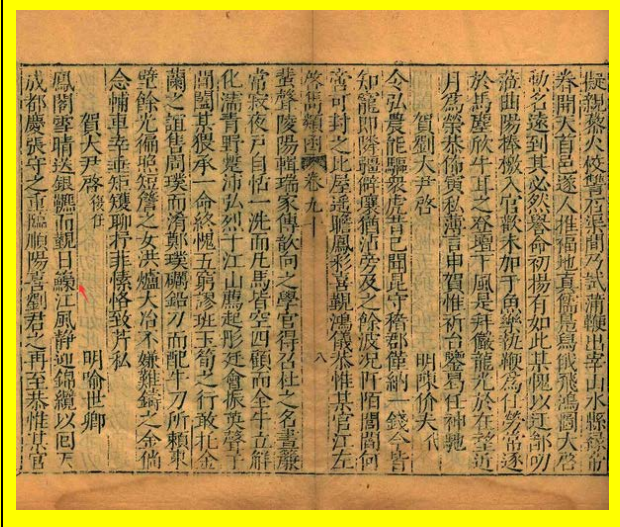 擬親藜火校讐石渠間乃試蒲鞭出宰山水縣祿帘
春開天百邑遂人推福地真儒菀為俄飛鴻圖大啓
勣名遠到其必然譽命初揚有如此某愧以迂部叨
蒞曲陽捧檄入官歡未加于魚樂執鞭為任勞常逐
於馬塵欣牛耳之登壇下風是拜儼龍光於在望近
月為榮恭俻寅私薄言申賀惟祈台鑒昜任神馳
賀劉大尹啓 明陳价夫代
令弘農能驅衆虎昔已聞昆守稽郡僅納一錢今皆
知寵即隣疆僻壤猶沾旁及之餘波况阡陌閭閻何
啻可封之比屋遥瞻鳳彩喜覩鴻儀恭惟某官江左
啓雋類函 卷九十 八
蜚聲陵陽輯瑞家傳歆向之學官得召杜之名晝簾
常寂夜戸自恬一洗而凡馬皆空四顧而全牛立解
化濡青野楚沛弘烈于江山鳬起彤廷會振英聲于
閶闔某猥承一命終愧五窮謬班玉筍之行敢扎金
蘭之誼售周璞而淆鄭璞礪鉛刀而配牛刀所頼東
壁餘光徧照短簷之女洪爐大冶不嫌難鑄之金倘
念輔車幸垂短矱聊行非愫恪致芹私
賀大尹啓 復任 明喻世卿
鳳閣雪晴送銀鑣而覲日鱶江風静迎錦纜以囘天
成都慶張守之重臨順陽喜劉君之再至恭惟某官